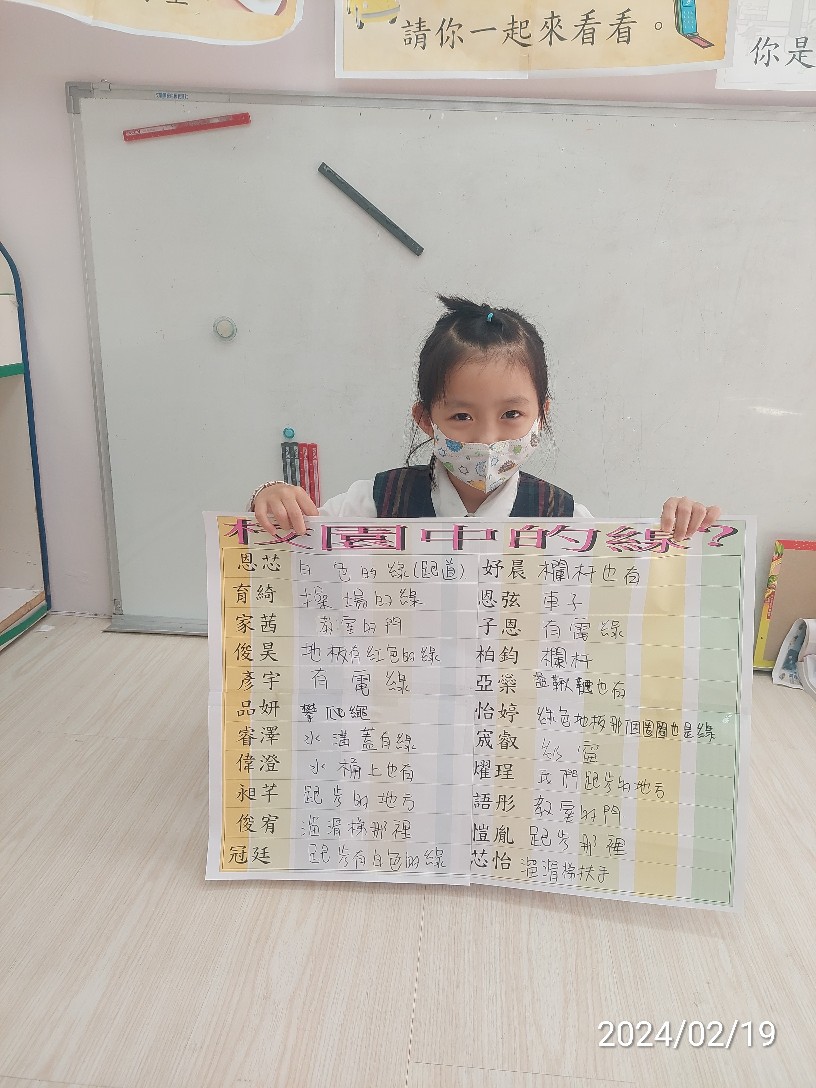 請你一起來看看。
你是
校園中的線?
恩芯 白色的線(跑道)
育綺 操場的線
家茜 教室的門
俊昊 地板有紅色的線
彥宇 有電線
品妍 攀爬繩
睿澤 水溝蓋白線
偉澄 水桶上也有
昶芊 跑步的地方
俊宥 溜滑梯那裡
冠廷 跑步有白色的線
妤晨 欄杆也有
恩弦 車子
子恩 有電線
柏鈞 欄杆
亞蘂 盪鞦韆也有
怡婷 綠色地板那個圈圈也是線
宬叡 教室
燿珵 我們跑步的地方
語彤 教室的門
愷胤 跑步那裡
芯怡 溜滑梯扶手
2024/02/19